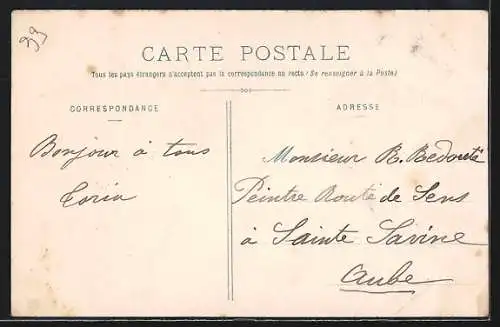 33
CARTE POSTALE
Tous les pays étrangers n'acceptent pas la correspondance au recto (Se renseigner à la Poste)
CORRESPONDANCE
ADRESSE
Bonjour à tous
Monsieur R. Redouté
Peintre Route de Sens
à Sainte Savine
Aube